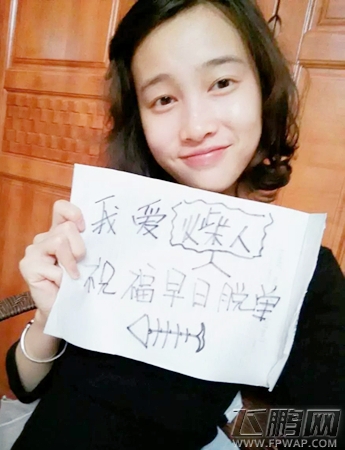 我爱火柴人
祝福早日脱单
飞鹏网
WWW.FPWAP.COM